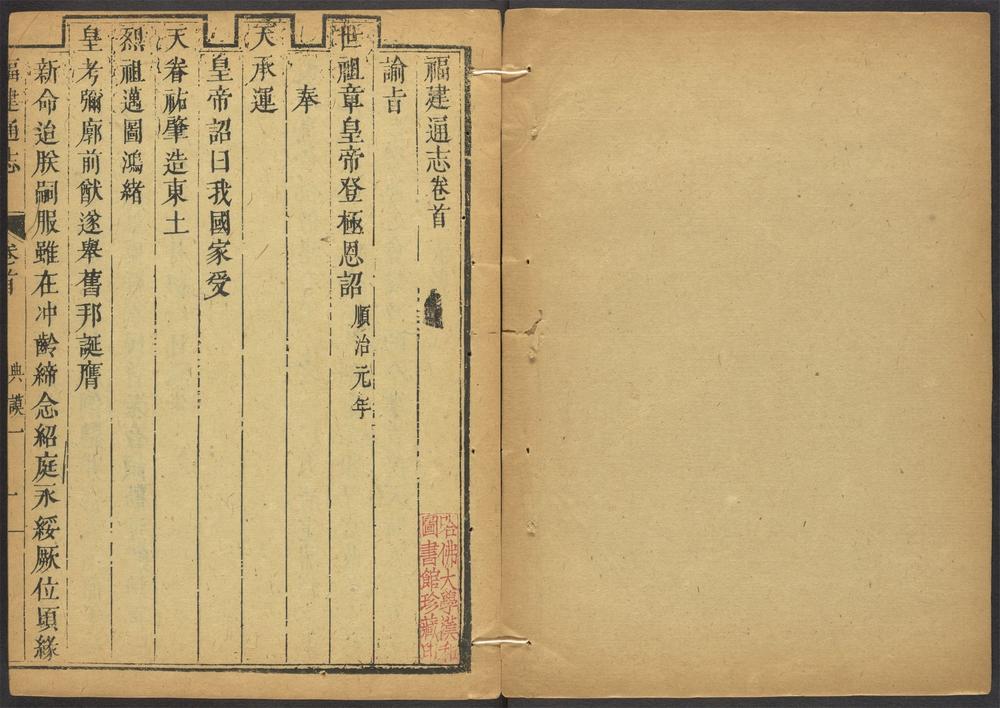 福建通志卷首
諭旨
世祖章皇帝登極恩詔順治元年
奉
天承運
皇帝詔曰我國家受
天眷祐肇造東土
烈祖邁圖鴻緒
皇考彌廓前猷遂舉舊邦誕膺
新命迨朕嗣服雖在冲齡締念紹庭永綏厥位頃緣
福建通志 卷首 典謨一 一
哈佛大學漢和
圖書館珍藏印